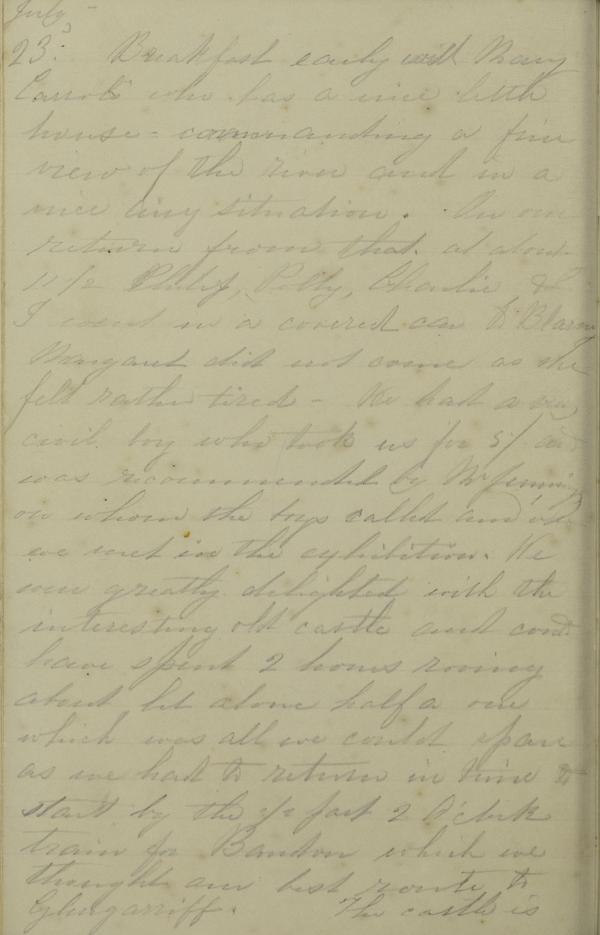 July
23d. Breakfast early with Mary
Carroll who has a nice little
house - commanding a fine
view of the river and in a
nice airy situation. On our
return from that at about
11 1/2 Philip, Polly, Charlie &
I went in a covered car to Blarney
Margaret did not come as she
felt rather tired - We had a very
civil boy who took us for 5/ and
was recommended by Mr Jennings
on whom the boys called and
we met in the exhibition. We
were greatly delighted with the
interesting old castle and could
have spent 2 hours roving
about let alone half a one
which was all we could spare
as we had to return in time to
start by the 1/2 past 2 O'clock
train for Bandon which we
thought our best route to
Glengarriff. The castle is